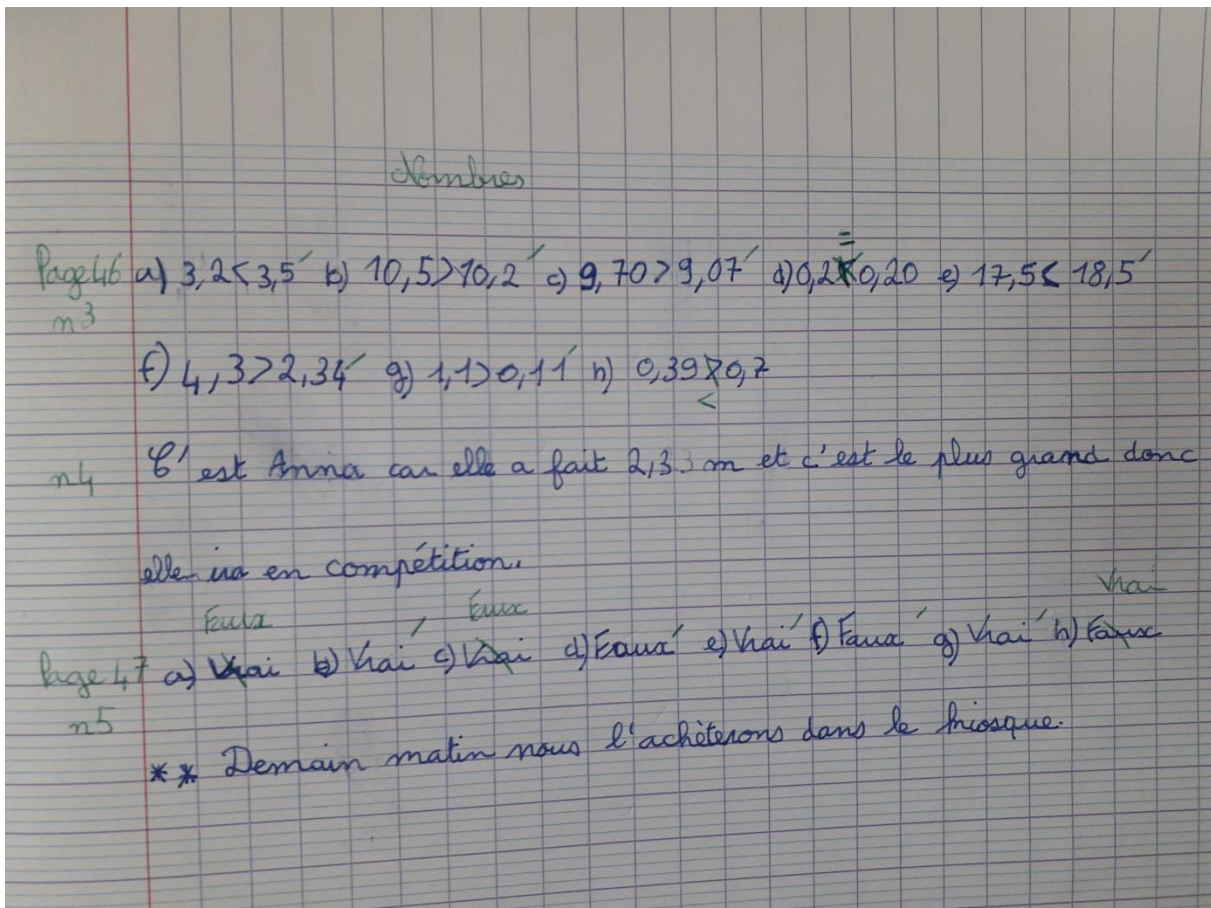 Nombres
=
Page 46 a) 3,2 < 3,5 b) 10,5 > 10,2 c) 9,70 > 9,07 d) 0,2 < 0,20 e) 17,5 < 18,5
n3
f) 4,3 > 2,34 g) 1,1 > 0,11 h) 0,39 > 0,7
<
n4 C'est Anna car elle a fait 2,3 m et c'est le plus grand donc
elle ira en compétition.
Faux Faux Vrai
Page 47 a) Vrai b) Vrai c) Vrai d) Faux e) Vrai f) Faux g) Vrai h) Faux
n5
** Demain matin nous l'achèterons dans le kiosque.